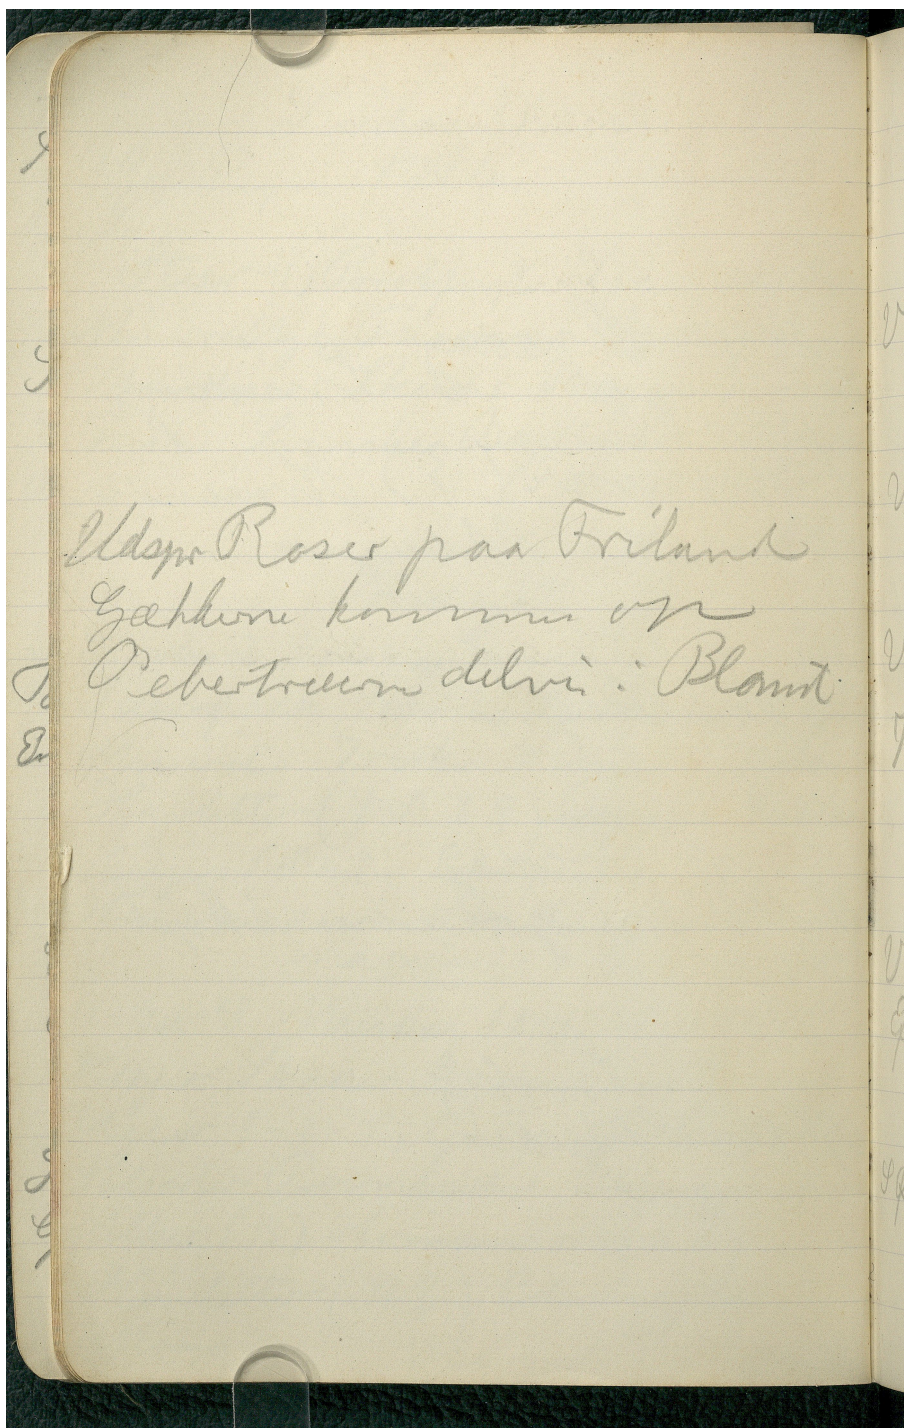 Udspr Roser paa Friland
Gækkerne kommer op
Pebertræerne delvis i Blomst